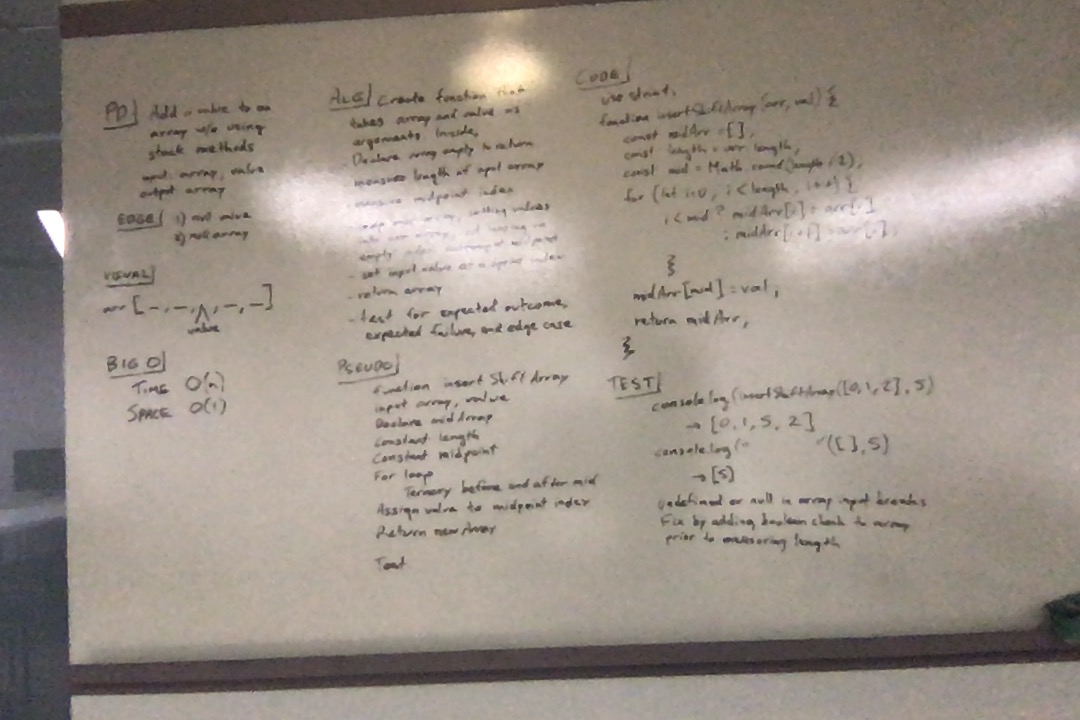 PD
Add a value to an
array w/o using
stock methods
input: array, value
output array
EDGE
1) null value
2) null array
VISUAL
arr [ _, _, ^, _, _ ]
value
BIG O
TIME O(n)
SPACE O(1)
ALG
Create function that
takes array and value as
arguments Inside,
Declare array empty to return
- measure length of input array
midpoint index
array, setting values
empty index
- set input value at midpoint index
- return array
- test for expected outcome,
expected failure, and edge case
PSEUDO
Function insert Shift Array
input array, value
Declare midArray
Constant length
Constant midpoint
For loop
Ternary before and after mid
Assign value to midpoint index
Return newArray
Test
CODE
use strict;
function insertShiftArray (arr, val) {
const midArr = [];
const length = arr.length;
const mid = Math.round(length / 2);
for (let i=0; i < length; i++) {
i < mid ? midArr[i] = arr[i]
: midArr[i+1] = arr[i];
}
midArr[mid] = val;
return midArr;
}
TEST
console.log(insertShiftArray([0, 1, 2], 5)
→ [0, 1, 5, 2]
console.log(" "([], 5)
→ [5]
undefined or null in array input breaks
Fix by adding boolean check to array
prior to measuring length